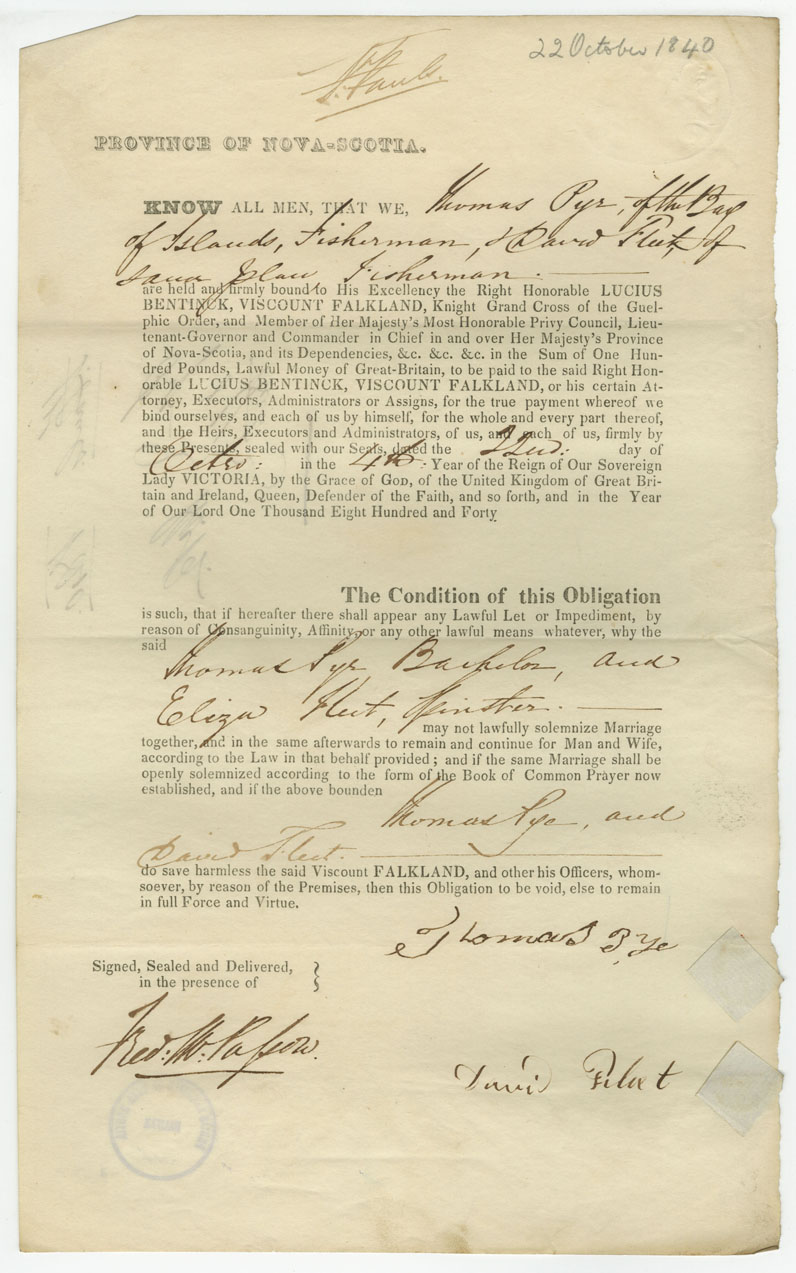 22 October 1840
St. Pauls.
PROVINCE OF NOVA-SCOTIA.
KNOW ALL MEN, THAT WE, Thomas Pye, of the Bay
of Islands, Fisherman, & David Fleet, of
same place Fisherman.
are held and firmly bound to His Excellency the Right Honorable LUCIUS
BENTINCK, VISCOUNT FALKLAND, Knight Grand Cross of the Guel-
phic Order, and Member of Her Majesty's Most Honorable Privy Council, Lieu-
tenant-Governor and Commander in Chief in and over Her Majesty's Province
of Nova-Scotia, and its Dependencies, &c. &c. &c. in the Sum of One Hun-
dred Pounds, Lawful Money of Great-Britain, to be paid to the said Right Hon-
orable LUCIUS BENTINCK, VISCOUNT FALKLAND, or his certain At-
torney, Executors, Administrators or Assigns, for the true payment whereof we
bind ourselves, and each of us by himself, for the whole and every part thereof,
and the Heirs, Executors and Administrators, of us, and each of us, firmly by
these Presents, sealed with our Seals, dated the 22nd: day of
Octro: in the 4th: Year of the Reign of Our Sovereign
Lady VICTORIA, by the Grace of GOD, of the United Kingdom of Great Bri-
tain and Ireland, Queen, Defender of the Faith, and so forth, and in the Year
of Our Lord One Thousand Eight Hundred and Forty
The Condition of this Obligation
is such, that if hereafter there shall appear any Lawful Let or Impediment, by
reason of Consanguinity, Affinity or any other lawful means whatever, why the
said
Thomas Pye, Bachelor, and
Eliza Fleet, Spinster.
may not lawfully solemnize Marriage
together, and in the same afterwards to remain and continue for Man and Wife,
according to the Law in that behalf provided; and if the same Marriage shall be
openly solemnized according to the form of the Book of Common Prayer now
established, and if the above bounden
Thomas Pye, and
David Fleet.
do save harmless the said Viscount FALKLAND, and other his Officers, whom-
soever, by reason of the Premises, then this Obligation to be void, else to remain
in full Force and Virtue.
Thomas Pye
Signed, Sealed and Delivered,
in the presence of
Fred: W. Passow.
David Fleet